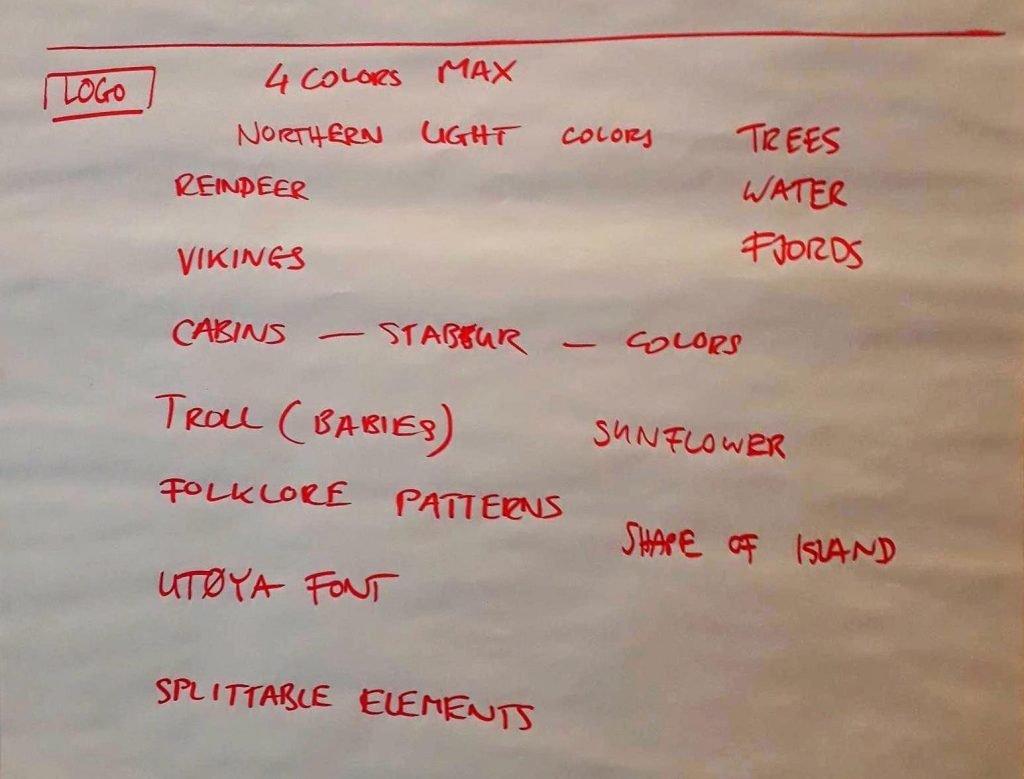 LOGO 4 COLORS MAX
NORTHERN LIGHT COLORS TREES
REINDEER WATER
VIKINGS FJORDS
CABINS — STABBUR — COLORS
TROLL (BABIES) SUNFLOWER
FOLKLORE PATTERNS
SHAPE OF ISLAND
UTØYA FONT
SPLITTABLE ELEMENTS